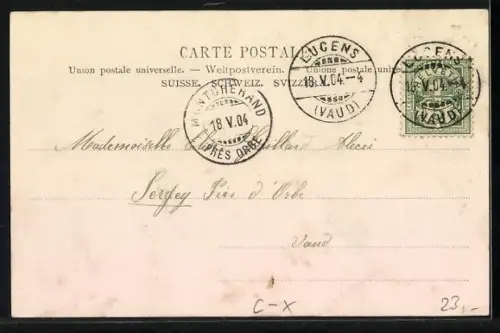 CARTE POSTALE
Union postale universelle. — Weltpostverein. — Unione postale
SUISSE. SCHWEIZ. SVIZZERA
LUCENS
18.V.04.–4
(VAUD)
LUCENS
18.V.04.–4
(VAUD)
HELVETIA
MONTCHERAND
18.V.04
PRÈS ORBE
Mademoiselle
Sergey Près d'Orbe
Vaud
C-X
23,-